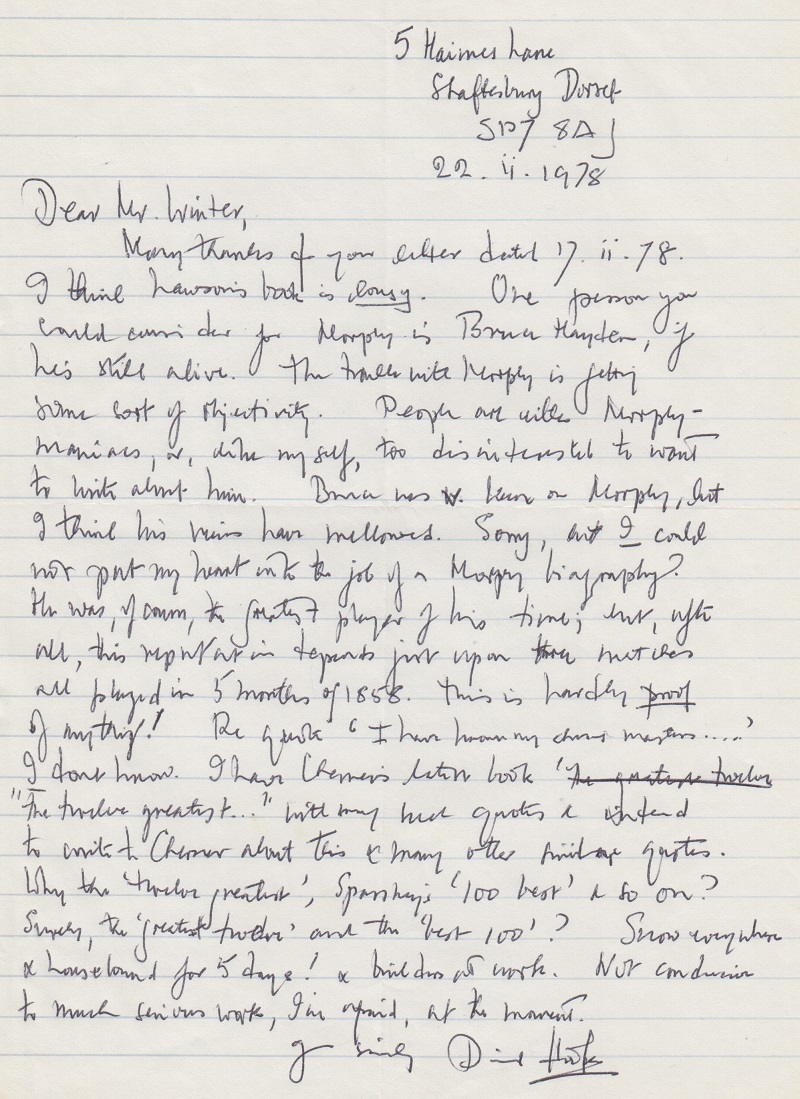 5 Haimes Lane
Shaftesbury Dorset
SP7 8AJ
22.ii.1978
Dear Mr. Winter,
Many thanks for your letter dated 17.ii.78.
I think Lawson's book is lousy. One person you
could consider for Morphy is Bruce Hayden, if
he's still alive. The trouble with Morphy is getting
some sort of objectivity. People are either Morphy-
maniacs, or, like myself, too disinterested to want
to write about him. Bruce was v. keen on Morphy, but
I think his views have mellowed. Sorry, but I could
not put my heart into the job of a Morphy biography?
He was, of course, the greatest player of his time; but, after
all, this reputation depends just upon three matches
all played in 5 months of 1858. This is hardly proof
of anything! Re quote 'I have known many chess masters.....'
I don't know. I have Chernev's latest book 'The greatest twelve
"The twelve greatest..." with many such quotes & intend
to write to Chernev about this & many other similar quotes.
Why the 'twelve greatest', Spassky's '100 best' & so on?
Surely, the 'greatest twelve' and the 'best 100'? Snow everywhere
& housebound for 5 days! & builders at work. Not conducive
to much serious work, I'm afraid, at the moment.
Yrs sincerely David Hooper